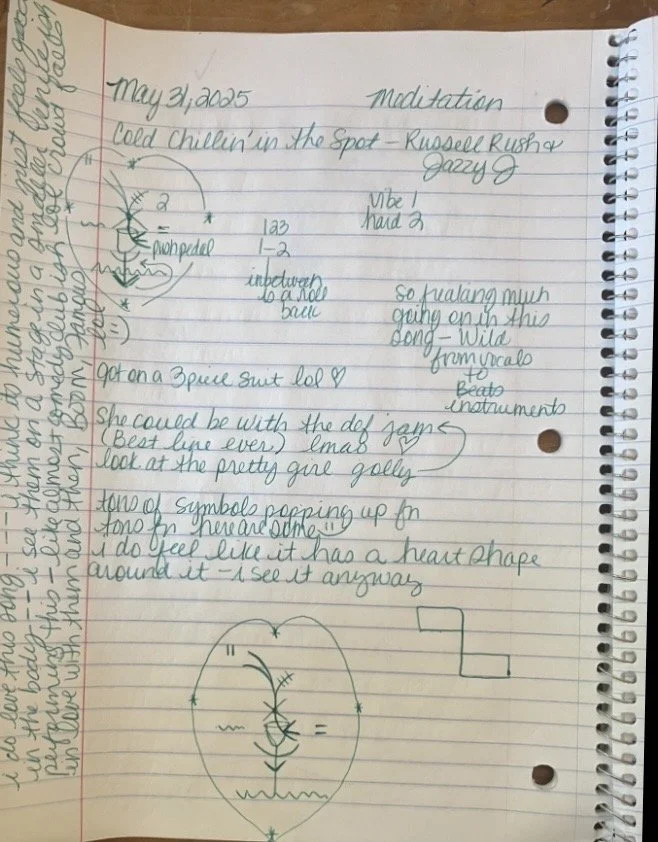 May 31, 2025
Meditation
Cold Chillin' in the Spot - Russell Rush &
Jazzy J
2
=
push pedal
lol
123
1-2
inbetween
is a roll
back
Vibe 1
hard 2
so fualang much
going on in this
song - Wild
from vocals
to
Beats
instruments
got on a 3 piece suit lol ♡
she could be with the def jam
(Best line ever) lmao ♡
look at the pretty girl golly
tons of symbols popping up fn
tons fn here are some
i do feel like it has a heart shape
around it - i see it anyway
i do love this song ---- i think its humorous and just feels good
in the body --- i see them on a stage in a smaller venue
performing this - like almost comedy clubish love crowd falls
in love with them and then, BOOM, famous